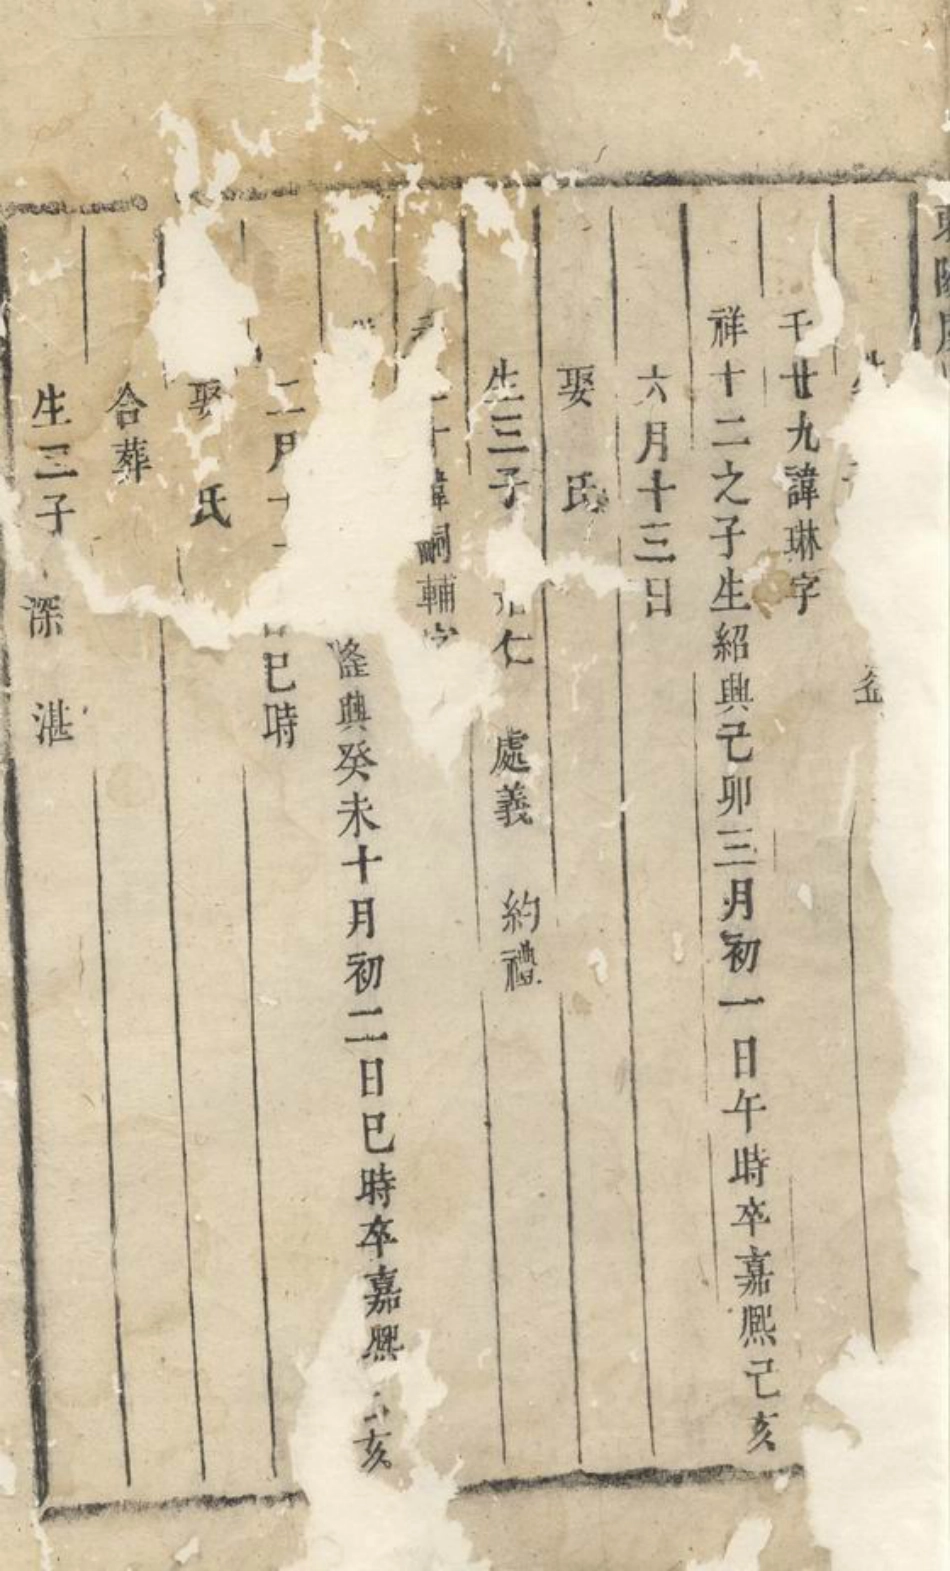 千廿九諱琳字
祥十二之子生紹興己卯三月初一日午時卒嘉熙己亥
六月十三日
娶 氏
生三子 仁 處義 約禮
十諱嗣輔字
隆興癸未十月初二日巳時卒嘉熙 亥
二月十 日巳時
娶 氏
合葬
生三子 深 湛